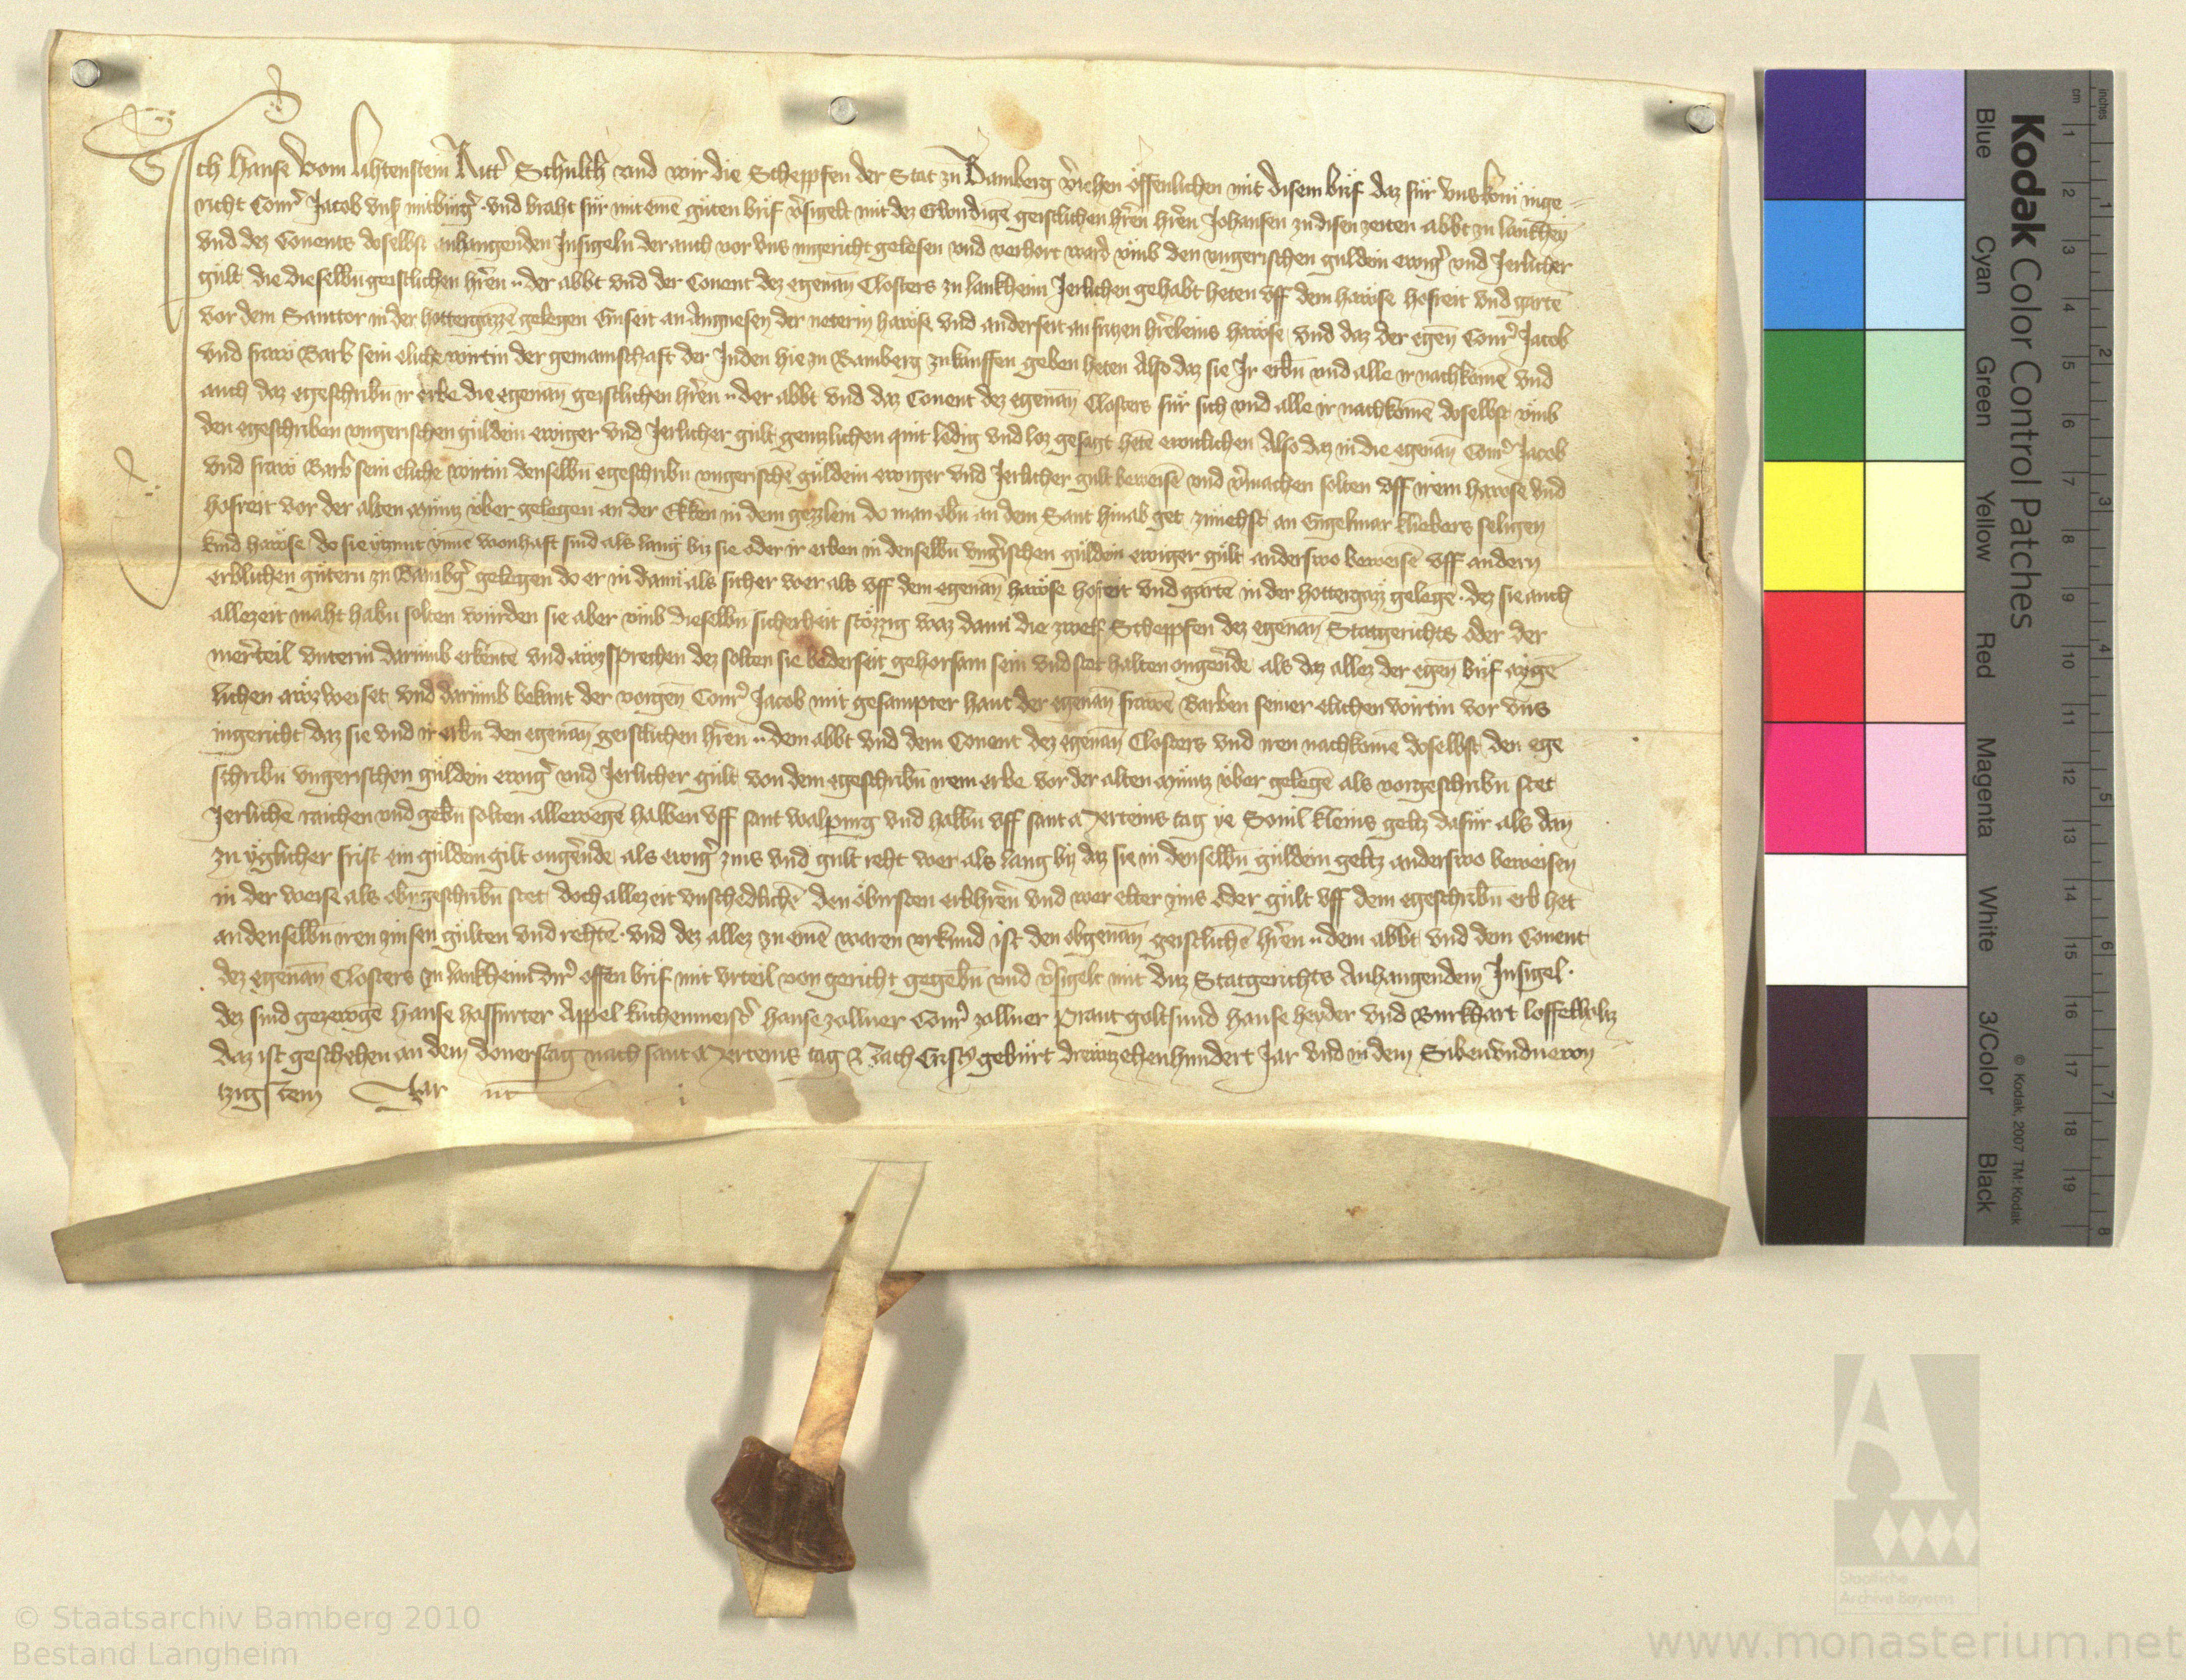 Ich Hanse vom Lihtenstein Ritt' Schulth und wir die Scheppfen der Stat zu Bamberg v'iehen offenlichen mit disem brif daz fur uns kom inge
riht Conr' Jacob uns' mitburg' und braht fur mit eine guten brif v'sigelt mit dez Erwirdigē geistlichen hr'en hr'en Johansen zu disen zeiten abbt zu lankheim
und dez Convents doselbst anhangenden Insigeln der auch vor uns ingericht gelesen und verhort ward umb den ungerischen guldein ewig' und Jerlicher
gult die dieselbn geistlichen hr'en der abbt und der Convent dez egenan Closters zu lankheim Jerlichen gehabt heten uff dem hawse hofreit und gartē
vor dem Santtor in der hottergazzē gelegen Einseit an Angnesen der neterin hawse und anderseit an fritzen hr'leins hawse und daz der egen Conr' Jacob
und fraw Barb sein eliche wirtin der gemainschaft der Juden hie zu Bamberg zu kauffen geben heten Also daz sie Ir erbn und alle ir nachkomē und
auch daz egeschribn ir erbe die egenan geistlichen hr'en der abbt und daz Convent dez egenan Closters fur sich und alle ir nachkomē doselbst umb
den egeschriben ungerischen guldein ewiger und Jerlicher gult gentzlichen quit ledig und loz gesagt hetē ewiclichen Also daz in die egenan Conr' Jacob
und fraw Barb sein eliche wirtin denselbn egeschribn ungerischē guldein ewiger und Jerlicher gult beweisē und v'machen solten uff irem hawse und
hofreit vor der alten Muntz uber gelegen an der Ekken in dem gezzlein do man obn an dem Sant hinab get zunehst an Engelmar kliebers seligen
kind hawse do sie ytzunt ynnē wonhaft sind als lang biz sie oder ir erben in denselbn ung'ischen guldein ewiger gult anderswo beweisē uff andern
erblichen gutern zu Bambg' gelegen do er in dann als sicher wer als uff dem egenan hawse hofreit und gartē in der hottergazz gelegē dez sie auch
allezeit maht habn solten wurden sie aber umb dieselbn sicherheit stozzig waz dann die zwelf Scheppfen dez egenan Statgerichts oder der
mer'teil unter in darumb erkentē und awzsprechen dez solten sie bederseit gehorsam sein und stet halten ongev'de als daz allez der egen brif aygē
lichen awzweiset und darumb bekant der vorgen Conr' Jacob mit gesampter hant der egenan frawē Barben seiner elichen wirtin vor uns
ingericht daz sie und ir erbn den egenan geistlichen hr'en dem abbt und dem Convent dez egenan Closters und iren nachkomē doselbst den ege
schribn ungerischen guldein ewig' und Jerlicher gult von dem egeschribn irem erbe vor der alten Muntz uber gelegē als vorgeschribn stet
Jerlichē raichen und gebn solten allewegē halben uff sant walpurg und halbn uff sant Merteins tag ye Sovil kleins geltz dafur als dan
zu yglicher frist ein guldein gilt ongev'de als ewig' zins und gult reht wer als lang biz daz sie in denselbn guldein geltz anderswo beweisen
in der weise als obngeschribn stet doch allezeit unschedlichē den obirsten erbhr'en und wer elter zins oder gult uff dem egeschribn erb het
an denselbn iren zinsen gulten und rehtē und dez allez zu einē waren urkund ist den obgenan geistlichē hr'en dem abbt und dem Convent
dez egenan Closters zu lankheim dir' offen brif mit urteil von gericht gegebn und v'sigelt mit ditz Statgerichts Anhangendem Insigel
dez sind gezewgē Hanse hassfurter Appel kuchenmeist' hanse zollner Conr' zollner Praut goltsmid hanse heyder und Burkhart loffelholtz
daz ist geschehen an dem donerstag nach sant Merteins tag Nach Cristy geburt drewtzehenhundert Jar und in dem Sibenundnewn
tzigstem Jar
Kodak Color Control Patches
Blue Cyan Green Yellow Red Magenta White 3/Color Black
© Kodak, 2007 TM: Kodak
inches 1 2 3 4 5 6 7 8
cm 1 2 3 4 5 6 7 8 9 10 11 12 13 14 15 16 17 18 19
A
Staatliche
Archive Bayerns
© Staatsarchiv Bamberg 2010
Bestand Langheim
www.monasterium.net